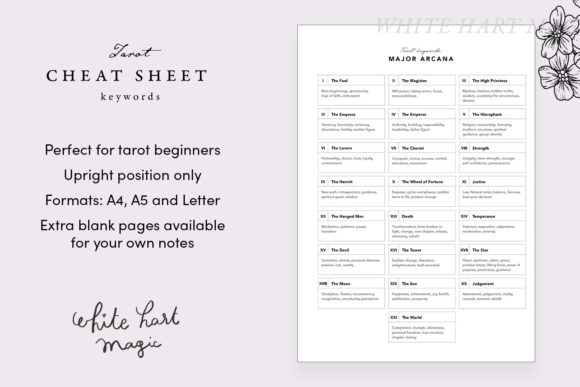 Tarot
CHEAT SHEET
keywords
Perfect for tarot beginners
Upright position only
Formats: A4, A5 and Letter
Extra blank pages available
for your own notes
white hart
magic
WHITE HART M
Tarot keywords
MAJOR ARCANA
The Fool
New beginnings, spontaneity,
leap of faith, enthusiasm
The Magician
Will power, taking action, focus,
resourcefulness
The High Priestess
Mystery, intuition, hidden truths,
wisdom, accessing the unconscious,
dreams
III The Empress
Harmony, femininity, nurturing,
abundance, fertility, mother figure
IV The Emperor
Authority, building, responsibility,
leadership, father figure
V The Hierophant
Religion, mentorship, formality,
tradition, structure, spiritual
guidance, group identity
VI The Lovers
Partnership, choice, trust, loyalty,
commitment
VII The Chariot
Conquest, victory, success, control,
relaxation, movement
VIII Strength
Integrity, inner strength, courage,
self-confidence, perseverance
IX The Hermit
New path, introspection, guidance,
spiritual quest, wisdom
X The Wheel of Fortune
Surprise, cycles and phases, sudden
turns in life, positive change
XI Justice
Law, Natural order, balance, fairness,
trust your decision
XII The Hanged Man
Meditation, patience, pause,
transition
XIII Death
Transformation, from shadow to
light, change, new chapter, release,
cleansing, rebirth
XIV Temperance
Patience, inspiration, adaptation,
moderation, serenity
XV The Devil
Limitation, savior, personal demons,
passion, lust, vanity
XVI The Tower
Sudden change, liberation,
enlightenment, truth revealed
XVII The Star
Hope, optimism, dawn, grace,
positive future, lifting force, sense of
purpose, protection, guidance
XVIII The Moon
Deception, illusion, inconsistency,
imagination, uncertainty, perception
XIX The Sun
Happiness, achievement, joy, health,
satisfaction, prosperity
XX Judgement
Assessment, judgement, vitality
rewards, renewal, rebirth
XXI The World
Completion, triumph, wholeness,
personal freedom, true vocation,
chapter closing